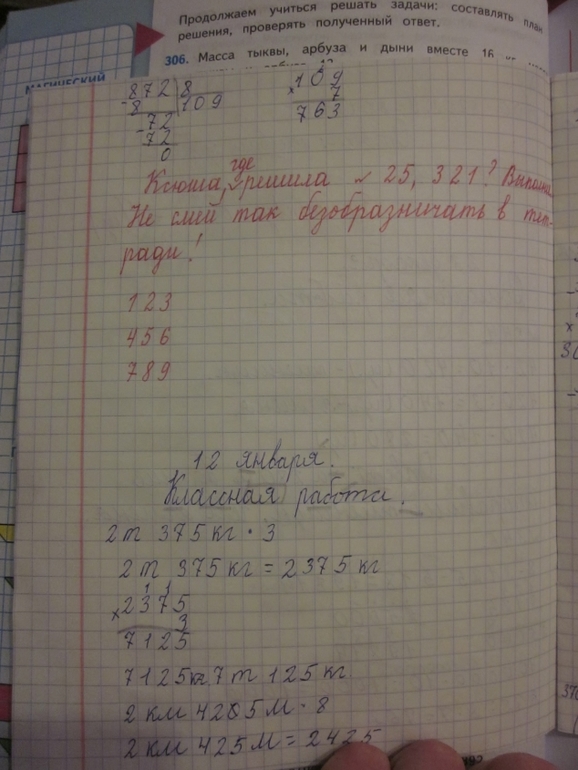 Продолжаем учиться решать задачи: составлять план
решения, проверять полученный ответ.
306. Масса тыквы, арбуза и дыни вместе 16
872 8
8 109
72
72
0
× 109
7
763
где
Ксюша, решила № 25, 321? Выполни
Не смей так безобразничать в тет-
ради!
123
456
789
12 января.
Классная работа.
2 т 375 кг · 3
2 т 375 кг = 2375 кг
1 1
× 2375
3
7125
7125 кг 7 т 125 кг
2 км 4205 м · 8
2 км 425 м = 2425